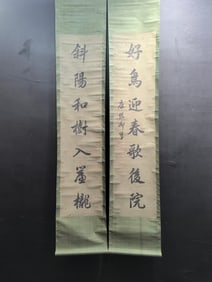 好鳥迎春歌後院
斜陽和樹入簾櫳